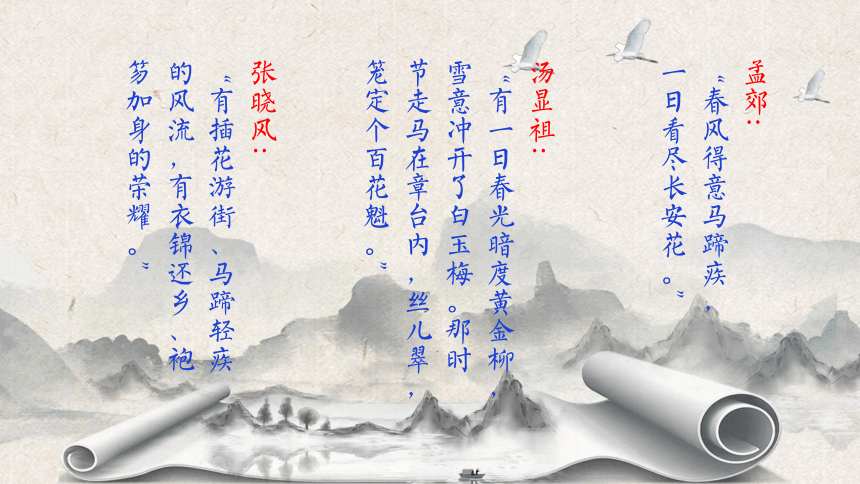 孟郊:
“春风得意马蹄疾，
一日看尽长安花。”
汤显祖:
“有一日春光暗度黄金柳，
雪意冲开了白玉梅。那时
节走马在章台内，丝儿翠，
笼定个百花魁。”
张晓风:
“有插花游街、马蹄轻疾
的风流，有衣锦还乡、袍
笏加身的荣耀。”